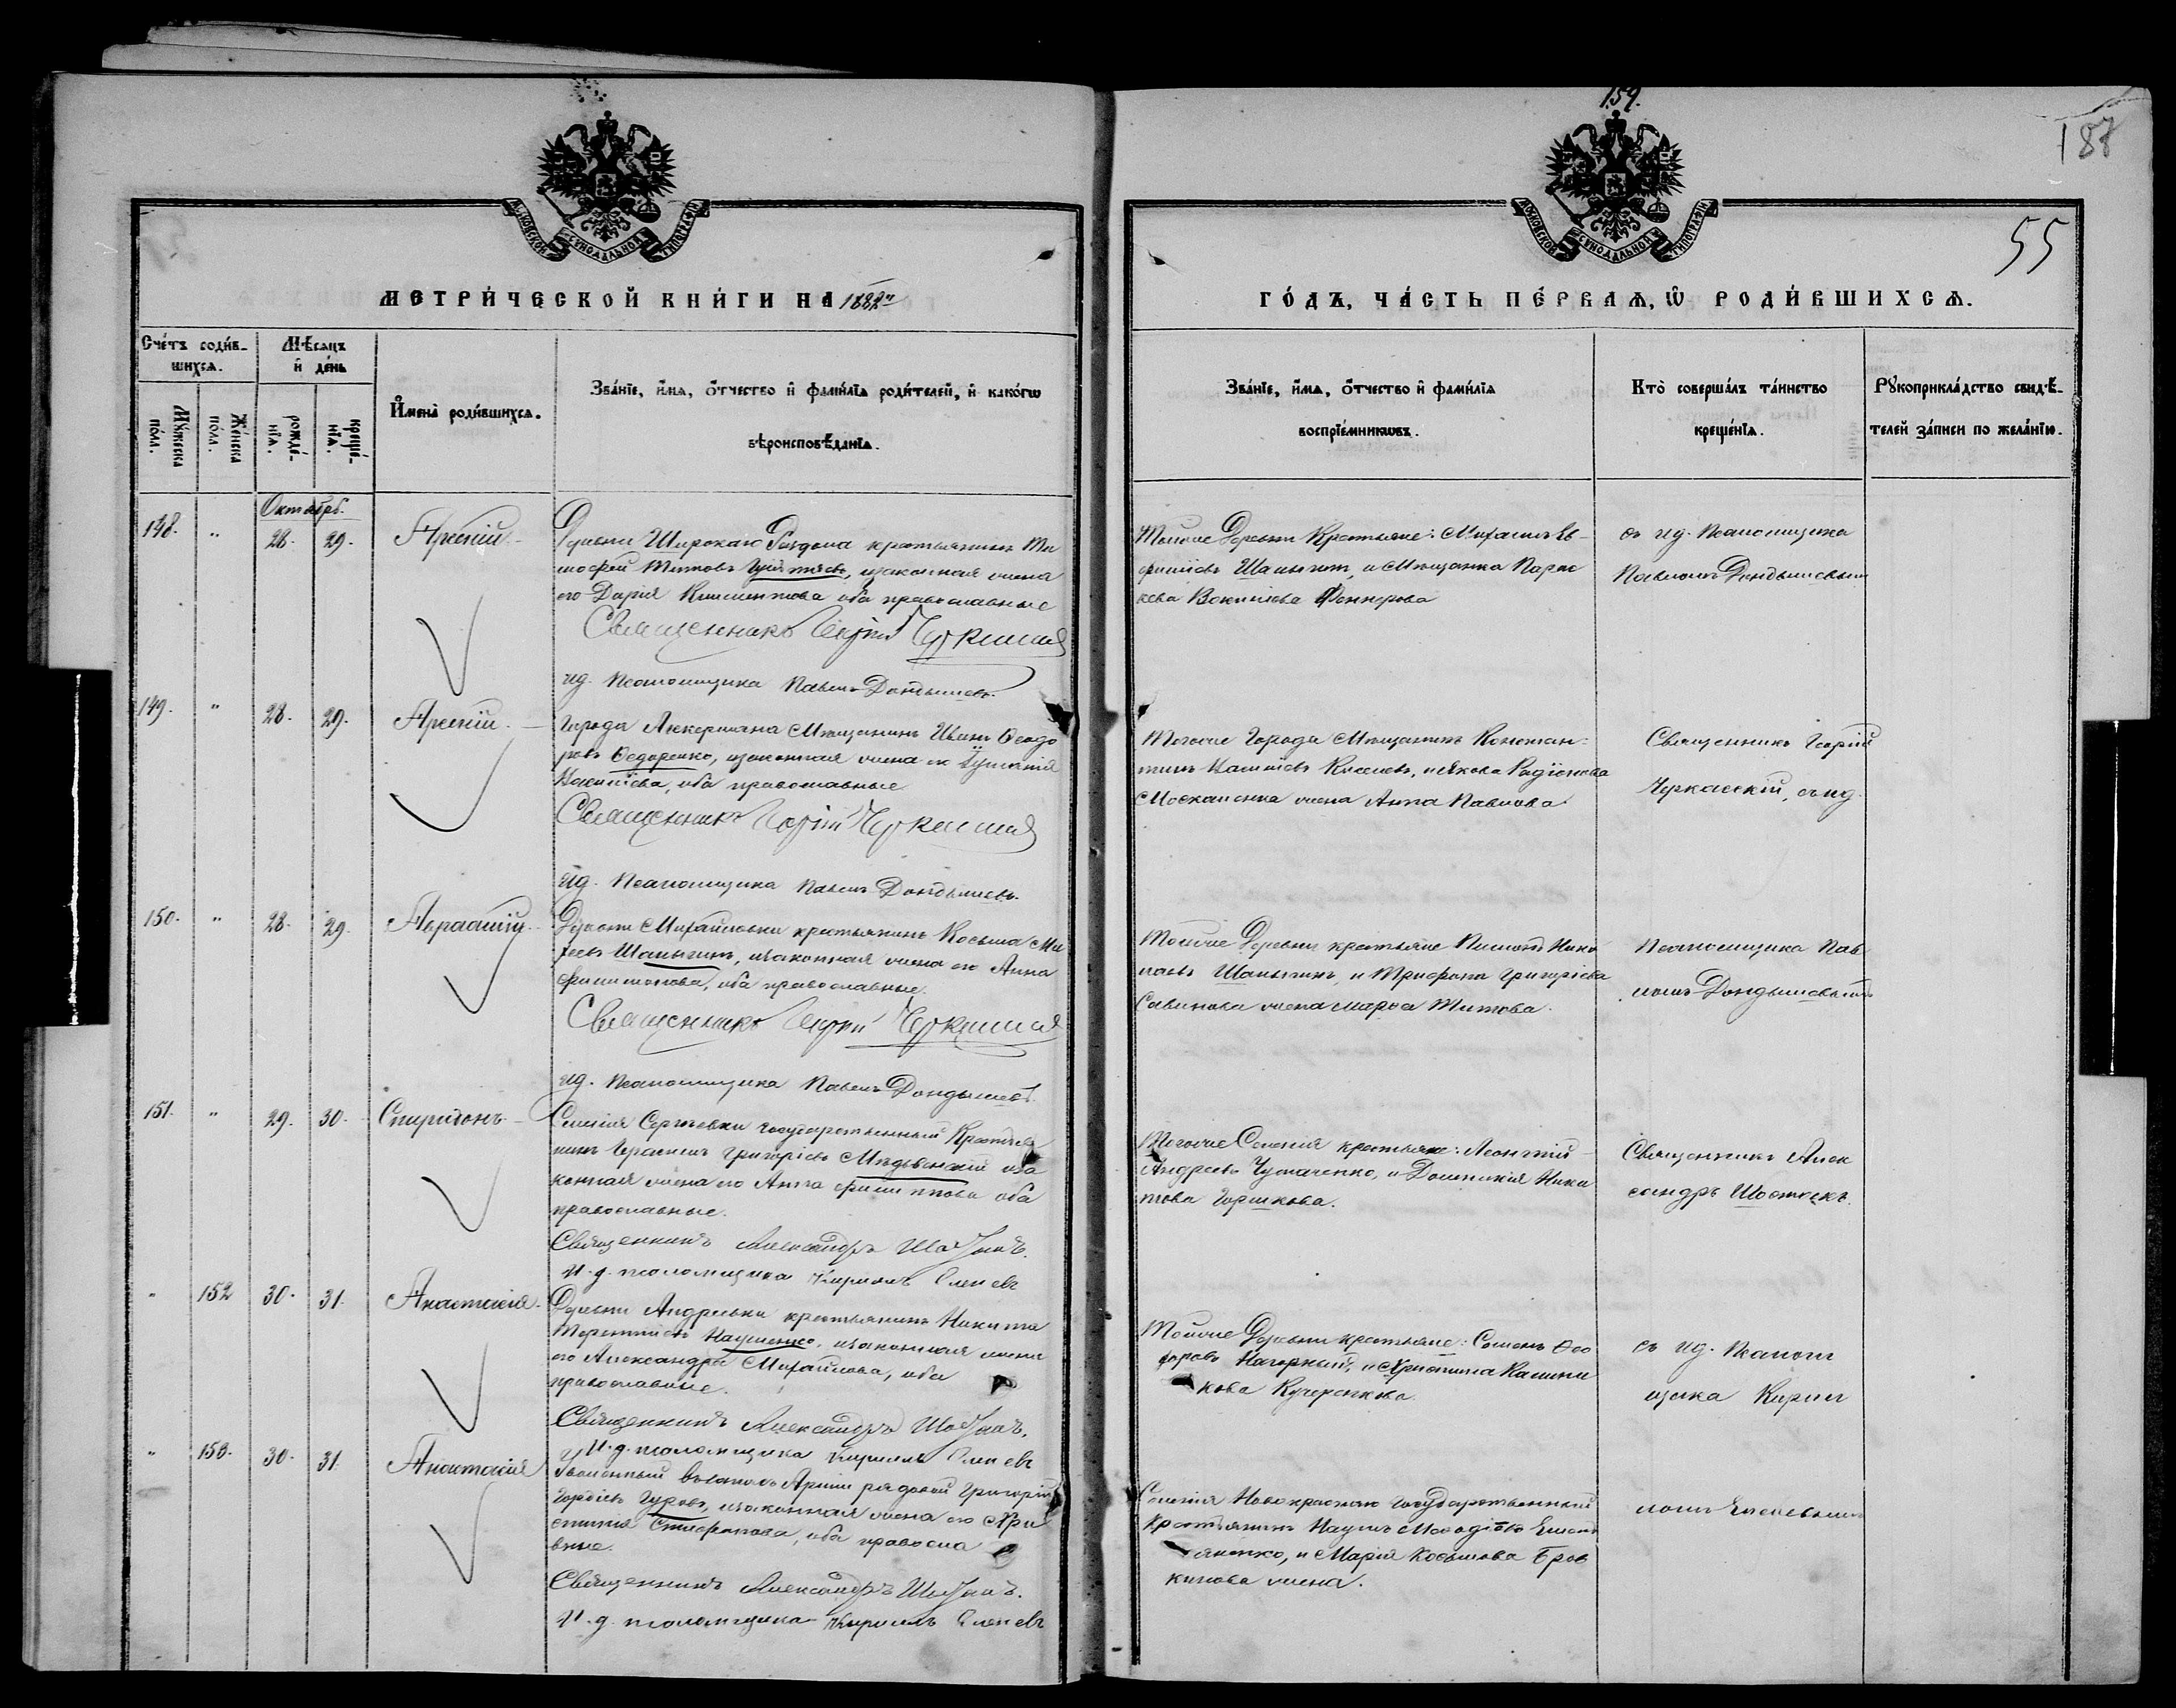 159.
187
55
МОСКОВСКОЙ СѴНОДАЛЬНОЙ ТИПОГРАФІИ
МОСКОВСКОЙ СѴНОДАЛЬНОЙ ТИПОГРАФІИ
МЕТРИ́ЧЕСКОЙ КНИ́ГИ НА 1882й
ГО́ДЪ, ЧА́СТЬ ПЕ́РВАѦ, Ѡ҆ РОДИ́ВШИХСѦ.
Сче́тъ роди́в-
шихсѧ.
Мѣ́сѧцъ
и҆ де́нь
Мꙋ́жеска
по́ла.
Же́нска
по́ла.
рожде́-
нїѧ.
креще́-
нїѧ.
И҆мена̀ роди́вшихсѧ.
Зва́нїе, и҆́мѧ, ѻ҆́тчество и҆ фами́лїѧ роди́телей, и҆ како́гѡ
вѣроисповѣ́данїѧ.
Зва́нїе, и҆́мѧ, ѻ҆́тчество и҆ фами́лїѧ
воспрїе́мникѡвъ.
Кто̀ соверша́лъ та́инство
креще́нїѧ.
Рꙋкоприкла́дство свидѣ́-
телей за́писи по жела́нїю.
Октябрь.
148. " 28. 29. Арсеній
Деревни Широкаго Раздола крестьянинъ Ти
мофей Титовъ, изаконная жена
его Дарія Климентова оба православные
Священникъ Георгій Черкасскій
ид. Псаломщика Павелъ Дондышевъ.
Тойже Деревни Крестьяне: Михаилъ Ев-
фиміевъ Шалыгин, и Мѣщанка Парас
кева
съ ид. Псаломщика
Павломъ Дондышевым
149. " 28. 29. Арсеній.
Города Аккермана Мѣщанинъ Иванъ Ѳеодо
ровъ Ѳедоренко, изаконная жена ея
оба православные
Священникъ Георгій Черкасскій
ид. Псаломщика Павелъ Дондышевъ.
Тогоже Города Мѣщанинъ Констан-
тинъ Киселевъ, и Якова Радіонова
Москаленка жена Анна Павлова
Священникъ Георгій
Черкасскій, съ ид.
150. " 28. 29. Авраамій
Деревни Михайловки крестьянинъ Косьма Ми
хеевъ Шалыгинъ, изаконная жена его Анна
Филимонова, оба православные.
Священникъ Георгій Черкасскій
ид. Псаломщика Павелъ Дондышевъ.
Тойже Деревни крестьяне Нико
лаевъ Шалыгинъ, и Трифона Григоріева
Савинова жена Марѳа Титова.
Псаломщика Пав
ломъ Дондышевымъ
151. " 29. 30. Спиридонъ
Селенія Сергѣевки государственный Крестья
нинъ Герасимъ Григоріевъ Мѣдвѣнскій иза
конная жена его Анна Филиппова оба
православные.
Священникъ Александръ Шостакъ.
И.д. псаломщика Кириллъ Еленевъ
Тогоже Селенія крестьяне: Леонтій
Андреевъ Чумаченко, и Домникія Ники
това Горшкова.
Священникъ Алек
сандръ Шостакъ.
" 152 30. 31. Анастасія.
Деревни Андреевки крестьянинъ Никита
Терентіевъ Науменко, изаконная жена
его Александра Михайлова, оба
православные.
Священникъ Александръ Шостакъ.
И.д. псаломщика Кириллъ Еленевъ
Тойже Деревни крестьяне: Семенъ Ѳео
доровъ Нагорный, и Христина Калини
кова Кучеренкова
съ ид. Псалом
щика Кирил
" 153. 30. 31. Анастасія
Уволенный въ запасъ Арміи рядовой Григорій
Гордѣевъ Гуровъ, изаконная жена его Хри
стинія Стефанова, оба правосла
вные.
Священникъ Александръ Шостакъ.
И.д. псаломщика Кириллъ Еленевъ
Селенія Новокраснаго Государственный
Крестьянинъ Наумъ Емель
яненко, и Марія Косьмова Бров
кинова жена.
ломъ Еленевымъ